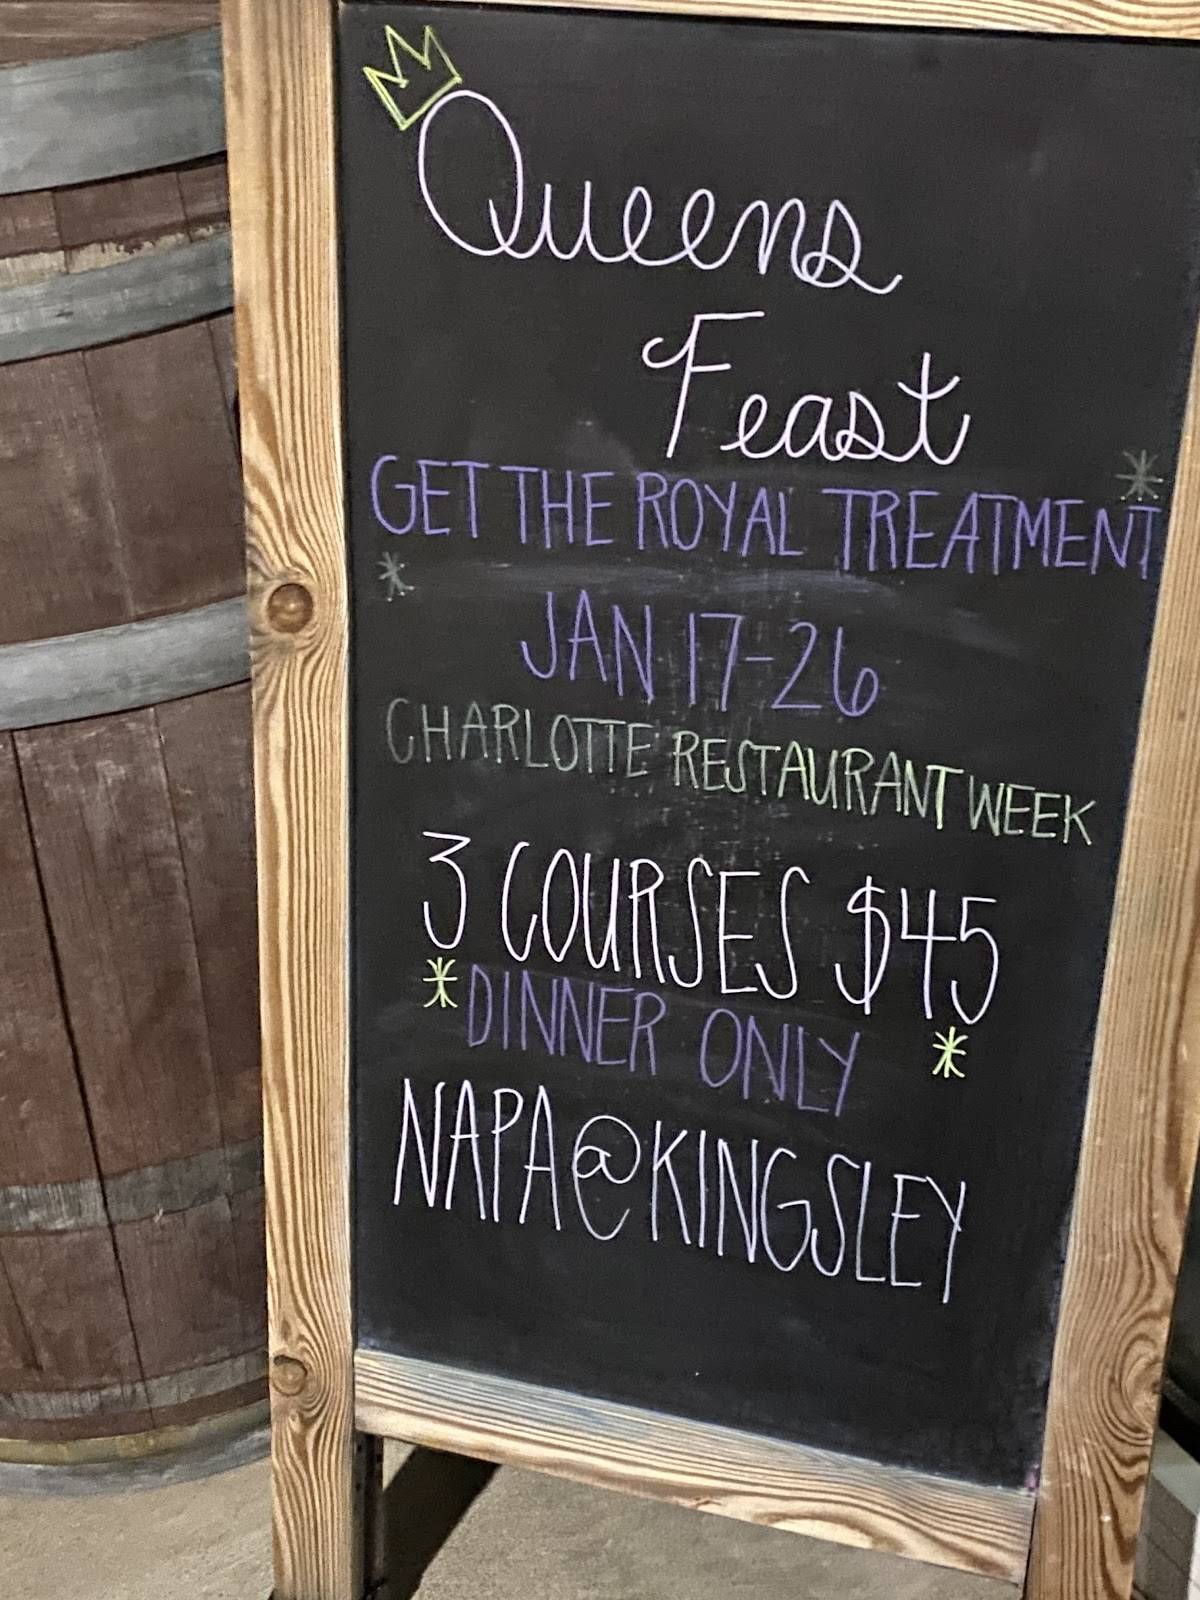 Queens
Feast
GET THE ROYAL TREATMENT
JAN 17-26
CHARLOTTE RESTAURANT WEEK
3 COURSES $45
*DINNER ONLY *
NAPA@KINGSLEY